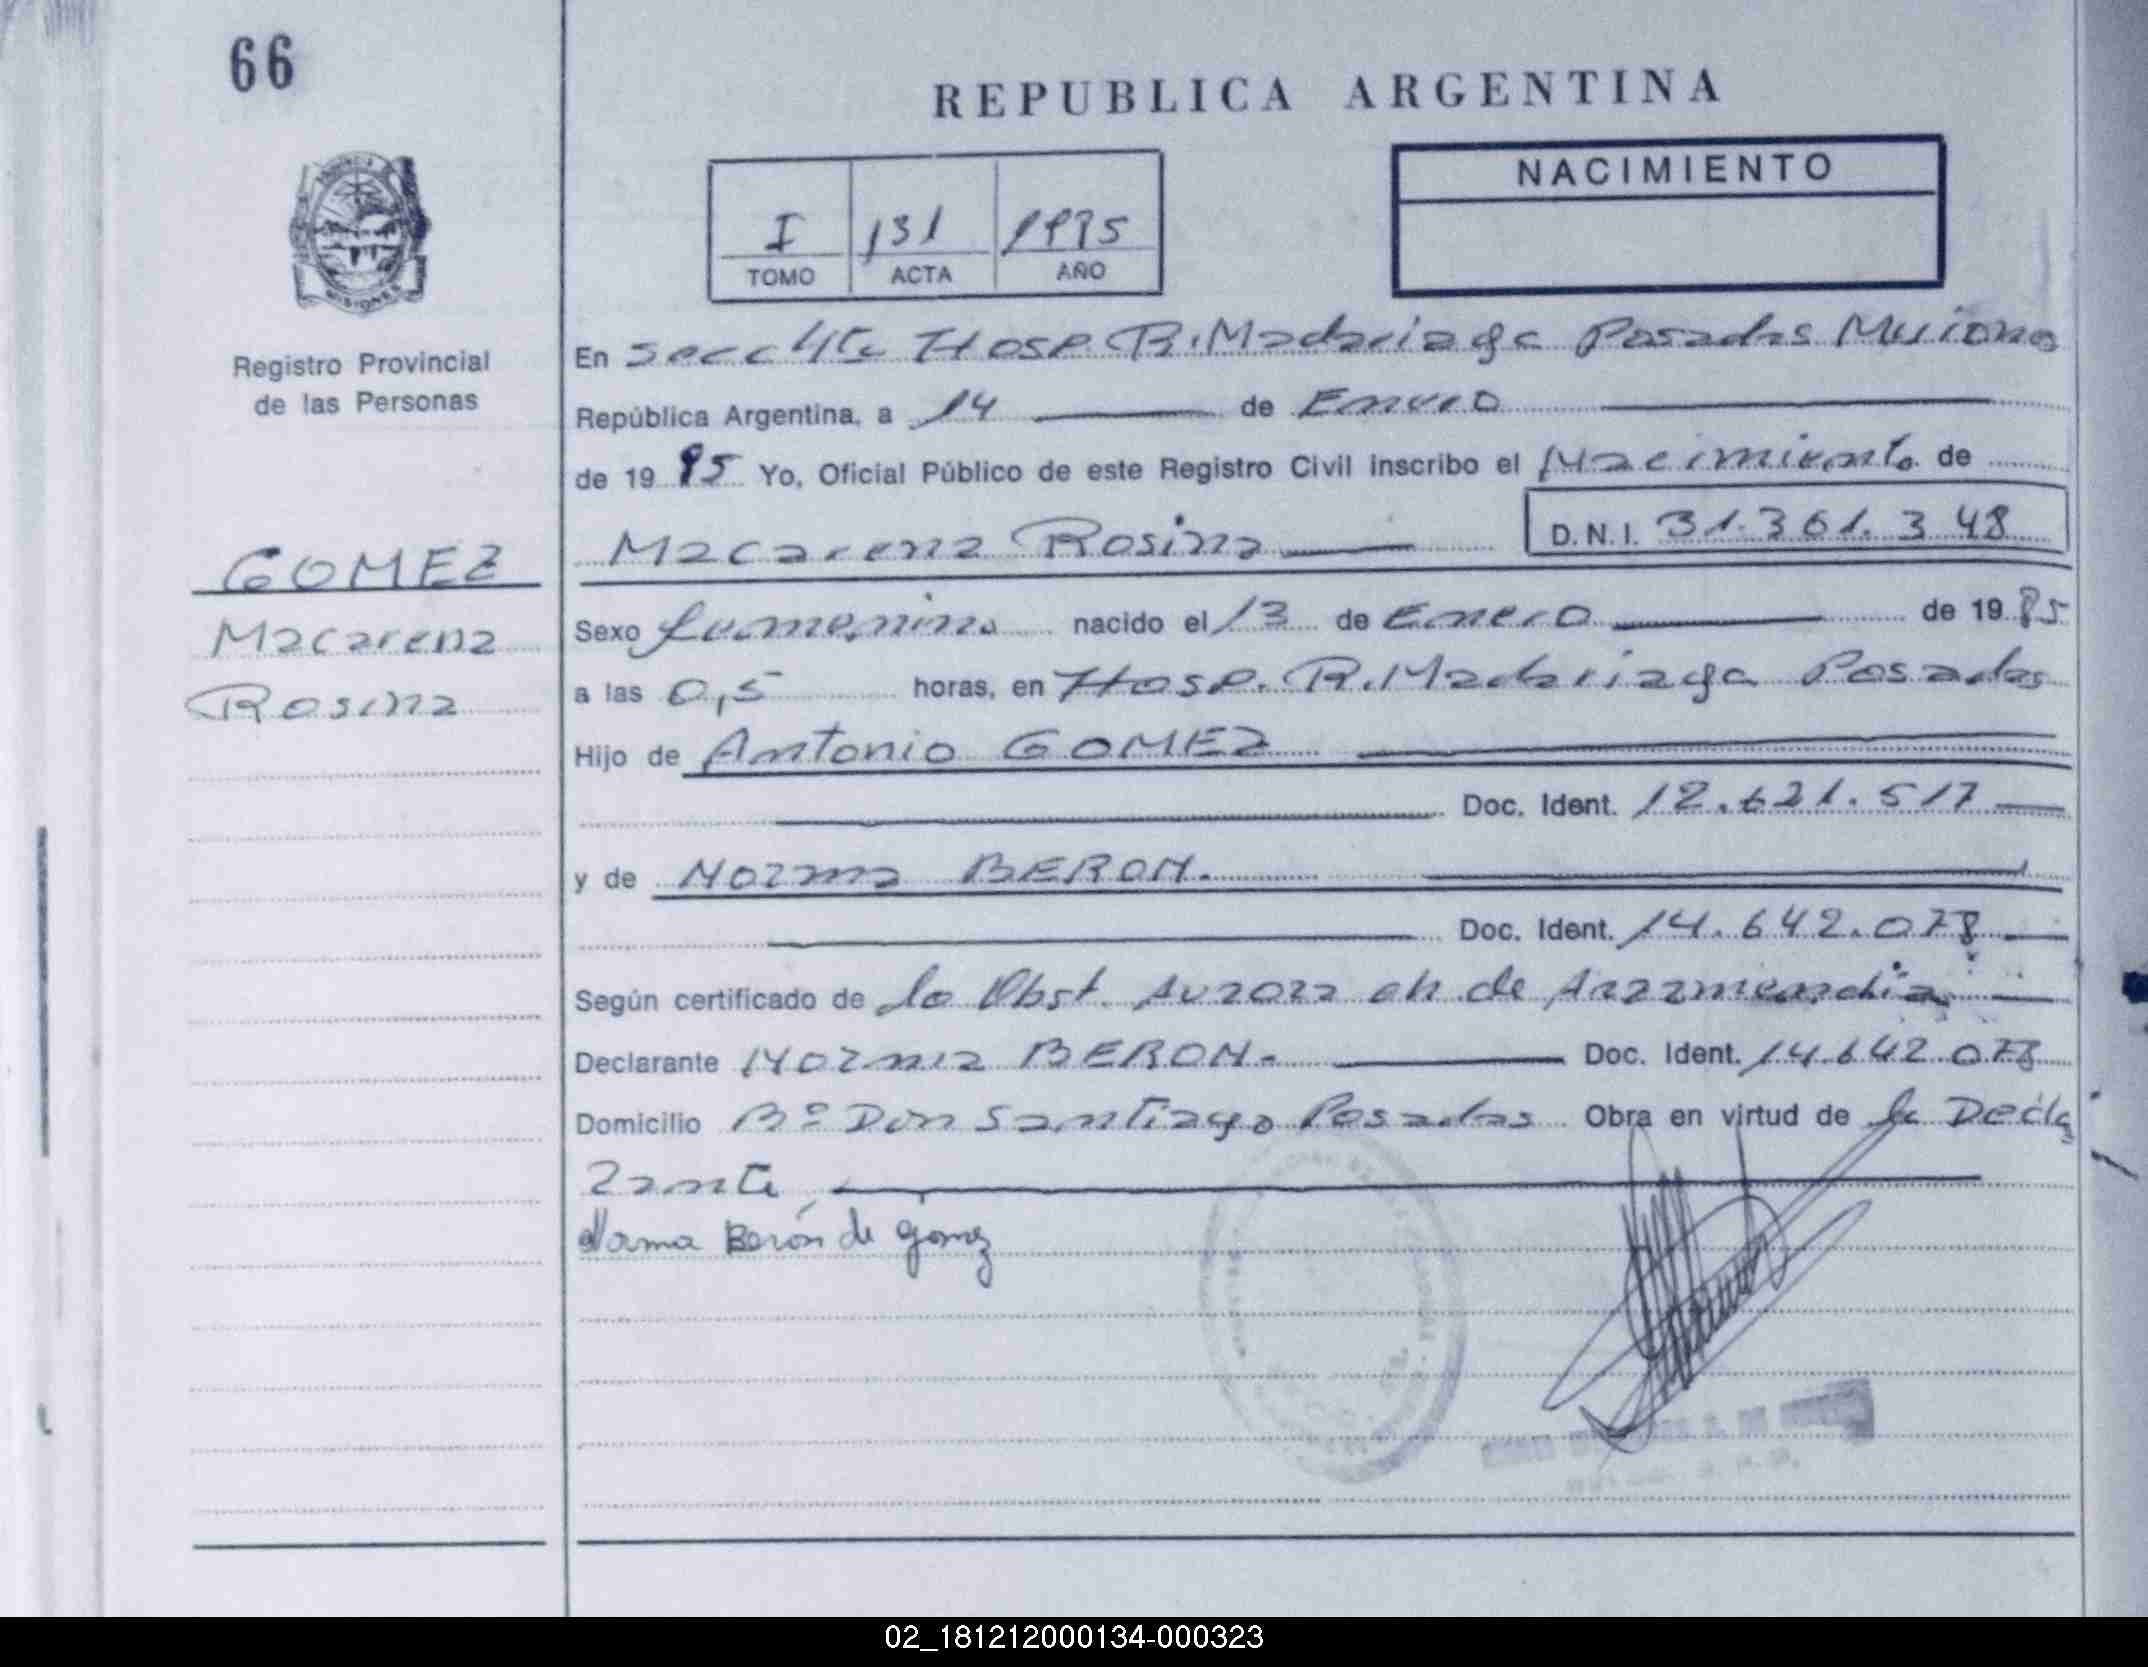 66
REPUBLICA ARGENTINA
NACIMIENTO
I 131 1985
TOMO ACTA AÑO
MISIONES
Registro Provincial
de las Personas
En Secc 4ta Hosp. R. Madariaga Posadas Misiones
República Argentina, a 14 de Enero
de 19 85 Yo, Oficial Público de este Registro Civil inscribo el Nacimiento de
Macarena Rosina D.N.I. 31.361.348
GOMEZ
Macarena
Rosina
Sexo femenino nacido el 13 de Enero de 19 85
a las 0,5 horas, en Hosp. R. Madariaga Posadas
Hijo de Antonio GOMEZ
Doc. Ident. 12.621.517
y de Norma BERON.
Doc. Ident. 14.642.078
Según certificado de la Obst. Aurora de Arazmendia
Declarante Norma BERON. Doc. Ident. 14.642.078
Domicilio Bº Don Santiago Posadas Obra en virtud de la Decla
rante
Norma Berón de Gomez
02_181212000134-000323